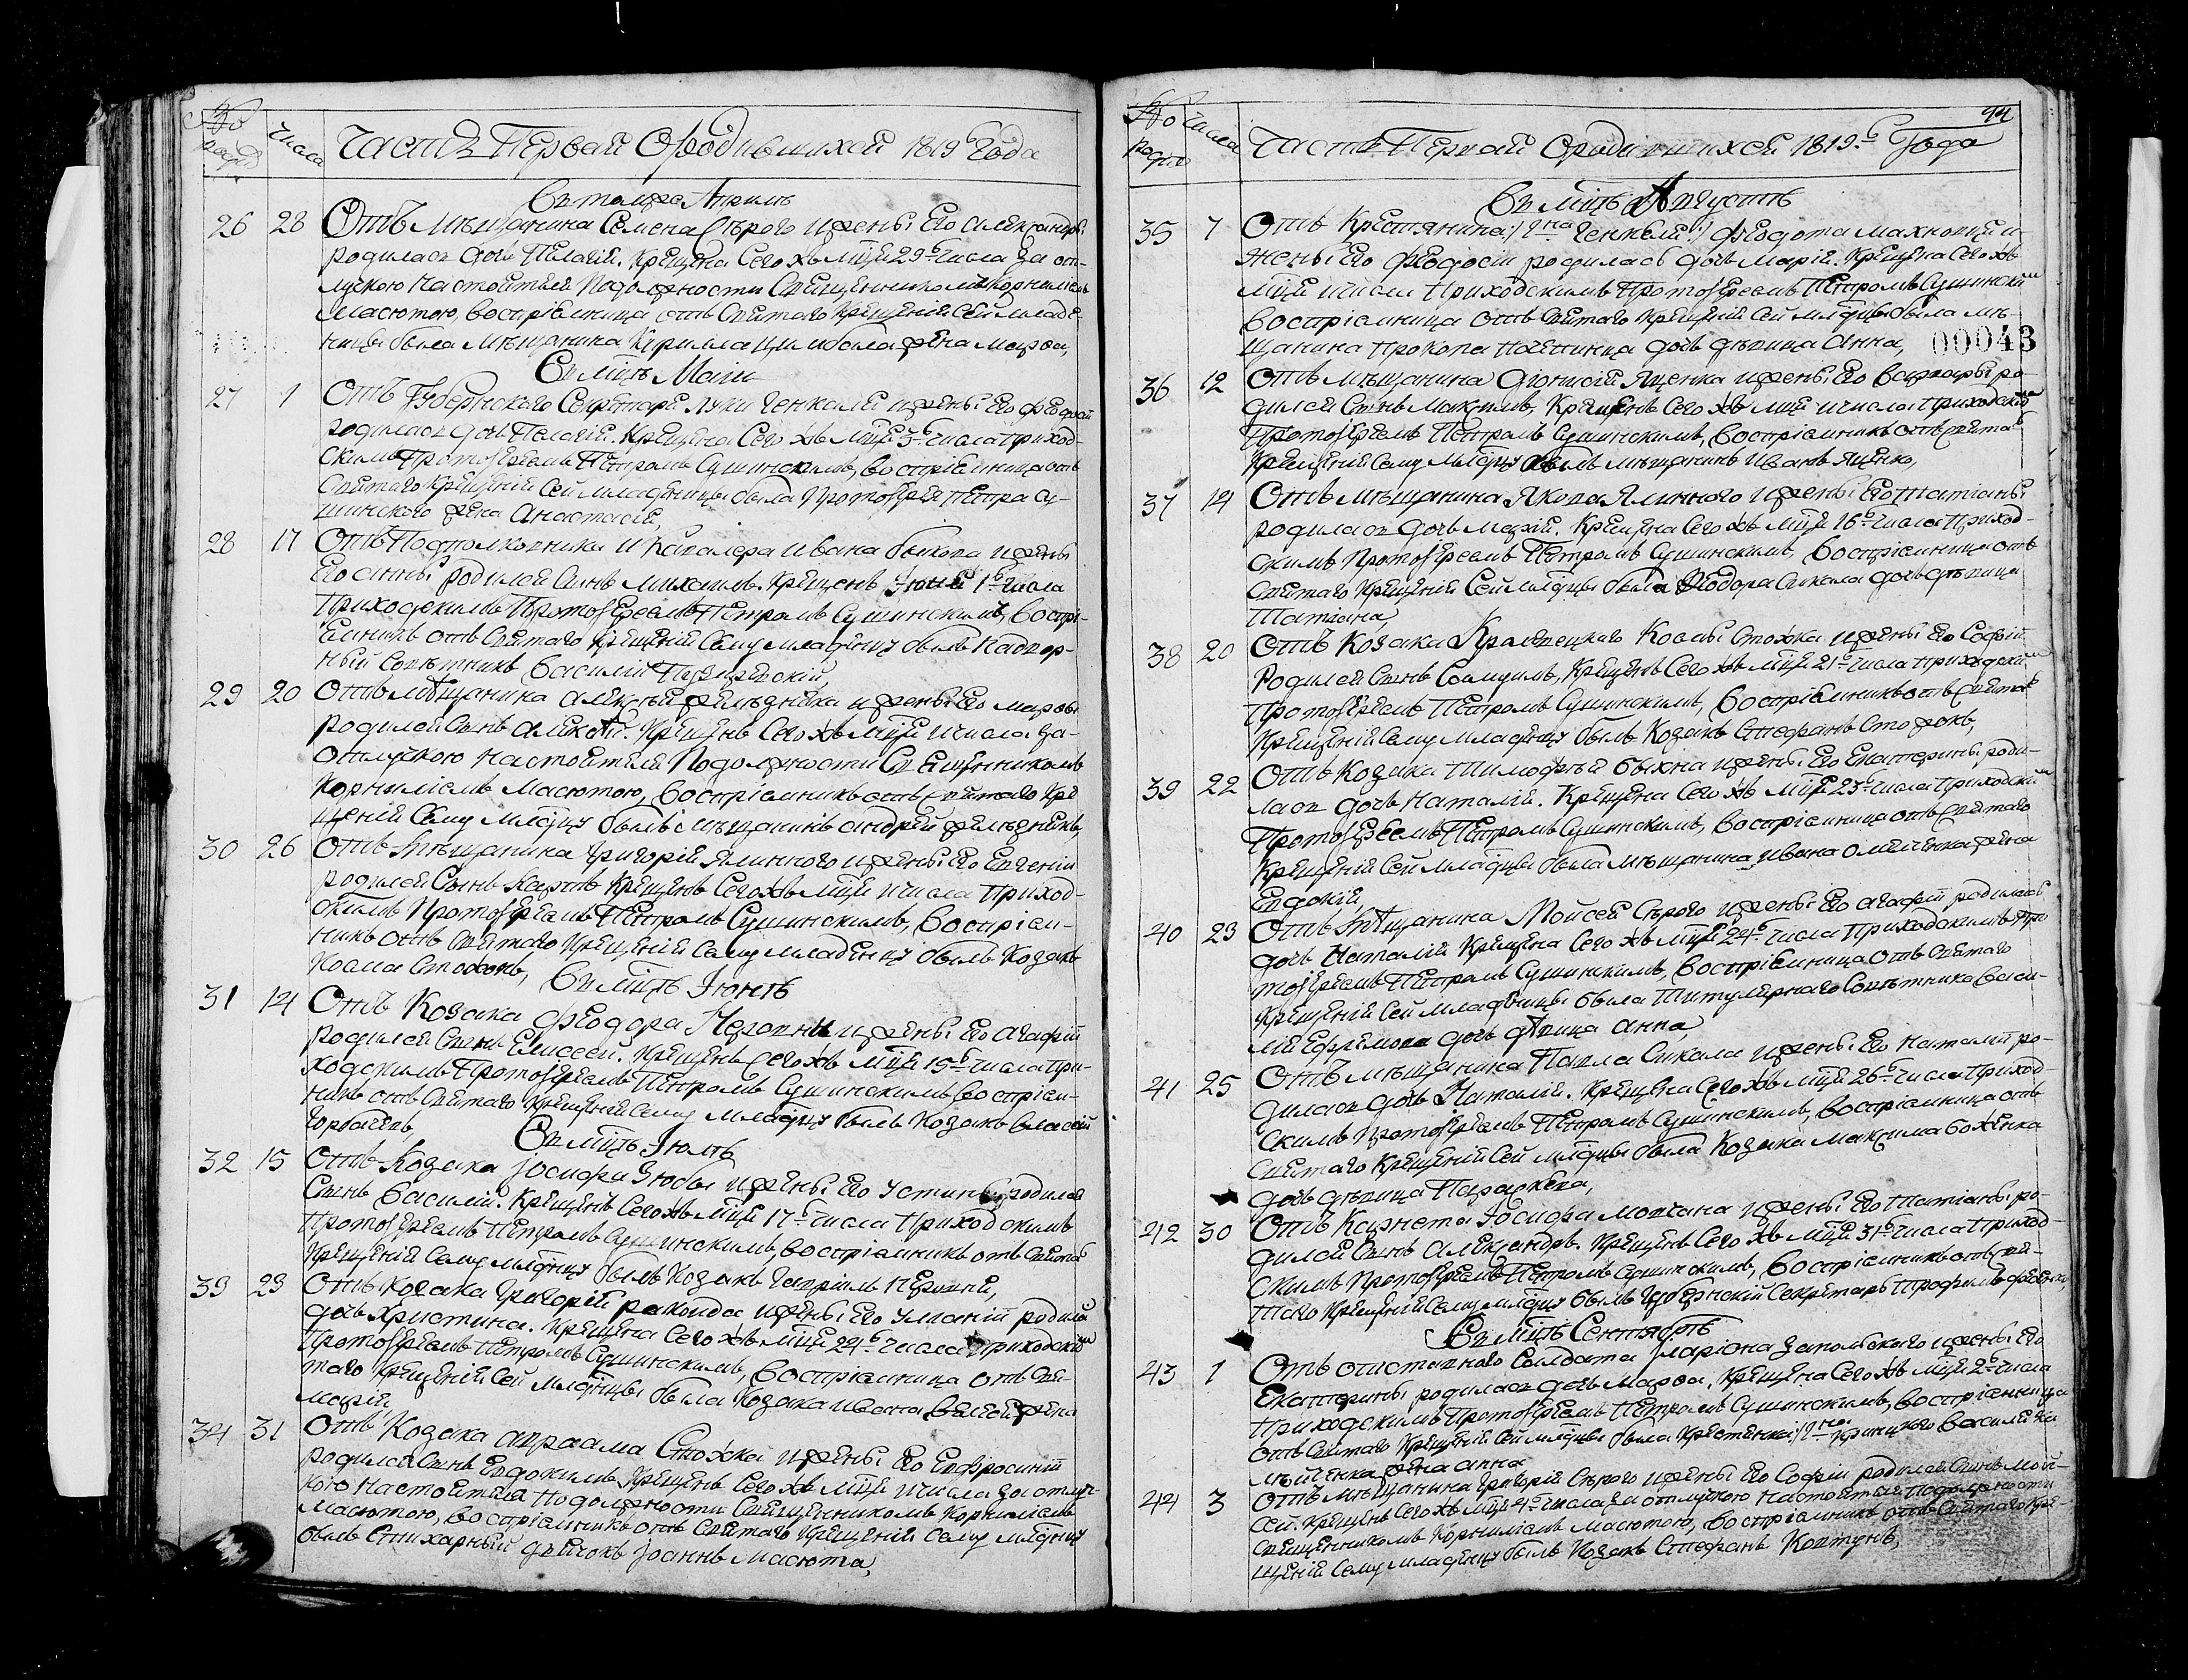 № родив
Числа
Часть Первая О родившихся 1819го Года
В томже Апреле
26 28 Отъ мѣщанина Семена Сѣрого и жены Его Александры
родилась дочь Пелагія. Крещена Сего хъ мца 29го числа за от-
лучкою Настоятеля По должности Священникомъ Корниліемъ
Масютою, воспріемница отъ Святаго Крещенія Сей младе-
ницы была мѣщанина Кирилла жена Марфа,
В мцѣ Маіи
27 1 Отъ Губернского Секретаря Луки Генкаля и жены Его Феодосіи
родилась дочь Пелагія. Крещена Сего хъ мца 3го числа Приход-
скимъ Протоіереемъ Петромъ Сушинскимъ, воспріемница отъ
Святаго Крещенія Сей младеницы была Протоіерея Петра Су-
шинского жена Анастасія,
28 17 Отъ Подполковника и Кавалера Ивана Быкова и жены
Его Анны родился Сынъ Михаилъ. Крещенъ Іюня 1го числа
Приходскимъ Протоіереемъ Петромъ Сушинскимъ, воспрі-
емникъ отъ Святаго Крещенія Сему младенцу былъ Надвор-
ный Совѣтникъ Василій
29 20 Отъ мѣщанина Алексѣя Желѣзняка и жены Его Марфы
родился Сынъ Алексѣй. Крещенъ Сего хъ мца числа за
отлучкою Настоятеля По должности Священникомъ
Корниліемъ Масютою, воспріемникъ отъ Святаго Кре-
щенія Сему млднцу былъ мѣщанинъ Андрей Желѣзнякъ,
30 26 Отъ мѣщанина Григорія Ялинного и жены Его Евгеніи
родился Сынъ Карпъ Крещенъ Сего хъ мца числа Приход-
скимъ Протоіереемъ Петромъ Сушинскимъ, воспріем-
никъ отъ Святаго Крещенія Сему младенцу былъ Козакъ
Косма Стожокъ,
В мцѣ Іюнѣ
31 14 Отъ Козака Феодора и жены Его Агафіи
родился Сынъ Елисей. Крещенъ Сего хъ мца 15го числа При-
ходскимъ Протоіереемъ Петромъ Сушинскимъ воспріем-
никъ отъ Святаго Крещенія Сему младнцу былъ Козакъ Власій
Горбачевъ
В мцѣ Іюлѣ
32 15 Отъ Козака Іосифа Зюбы и жены Его Устины родился
Сынъ Василій. Крещенъ Сего хъ мца 17го числа Приходскимъ
Протоіереемъ Петромъ Сушинскимъ, воспріемникъ отъ Святаго
Крещенія Сему младнцу былъ Козакъ Гавріилъ
33 23 Отъ козака Григорія Ракоида, и жены Его Уліаніи родилась
дочь Христина. Крещена Сего хъ мца 24го числа Приходскимъ
Протоіереемъ Петромъ Сушинскимъ, воспріемница отъ Свя-
таго Крещенія Сей младнцы была Козака Ивана жена
Марія
34 31 Отъ Козака Авраама Стожка и жены Его Евфросиніи
родился Сынъ Евдокимъ Крещенъ Сего хъ мца числа за отлуч-
кою Настоятеля По должности Священникомъ Корниліемъ
Масютою, воспріемникъ отъ Святаго Крещенія Сему младнцу
былъ Стихарный дьячокъ Іоаннъ Масюта,
№ родив
Числа
Часть Первая О родившихся 1819го Года
44
В мцѣ Августѣ
35 7 Отъ Крестянина:/ Гна Генкаля:/ Федота Махновця и
жены Его Феодосіи родилась дочь Марія. Крещена Сего хъ
мца числа Приходскимъ Протоіереемъ Петромъ Сушинскимъ
Воспріемница отъ Святаго Крещенія Сей младнцы была мѣ-
щанина Прокопа дочь дѣвица Анна,
00043
36 12 Отъ мѣщанина Діонисія Яценка и жены Его Варвары ро-
дился Сынъ Максимъ, Крещенъ Сего хъ мца числа Приходскимъ
Протоіереемъ Петромъ Сушинскимъ, воспріемникъ отъ Святаго
Крещенія Сему младнцу былъ мѣщанинъ Иванъ Яценко,
37 14 Отъ мѣщанина Якова Ялинного и жены Его Татіаны
родилась дочь Марія. Крещена Сего хъ мца 16го числа Приход-
скимъ Протоіереемъ Петромъ Сушинскимъ, воспріемница отъ
Святаго Крещенія Сей младнцы была Феодора Сикала дочь дѣвица
Татіана,
38 20 Отъ Козака Космы Стожка и жены Его Софіи
Родился Сынъ Самуилъ, Крещенъ Сего хъ мца 21го числа Приходскимъ
Протоіереемъ Петромъ Сушинскимъ, воспріемникъ отъ Святаго
Крещенія Сему младенцу былъ Козакъ Стефанъ Стожокъ,
39 22 Отъ Козака Тимофѣя и жены Его Екатерины роди-
лась дочь Наталія. Крещена Сего хъ мца 23го числа Приходскимъ
Протоіереемъ Петромъ Сушинскимъ, воспріемница отъ Святаго
Крещенія Сей младнцы была мѣщанина Ивана Омелченка жена
Евдокія,
40 23 Отъ мѣщанина Мойсея Сѣрого и жены Его Агафіи родилась
дочь Наталія Крещена Сего хъ мца 24го числа Приходскимъ Про-
тоіереемъ Петромъ Сушинскимъ, воспріемница отъ Святаго
Крещенія Сей младеницы была Титулярнаго Совѣтника Васи-
лія Ефимова дочь дѣвица Анна,
41 25 Отъ мѣщанина Павла Сикала и жены Его Наталіи ро-
дилась дочь Наталія. Крещена Сего хъ мца 26го числа Приход-
скимъ Протоіереемъ Петромъ Сушинскимъ, воспріемница отъ
Святаго Крещенія Сей младнцы была Козака Максима Боженка
дочь дѣвица Параскева,
42 30 Отъ Корнета Іосифа Мовчана и жены Его Татіаны ро-
дился Сынъ Александръ. Крещенъ Сего хъ мца 31го числа Приход-
скимъ Протоіереемъ Петромъ Сушинскимъ, воспріемникъ отъ Свя-
таго Крещенія Сему младнцу былъ Губернскій Секретарь Трофимъ
В мцѣ Сентябрѣ
43 1 Отъ отставного Солдата Іларіона и жены Его
Екатерины родилась дочь Марфа, Крещена Сего хъ мца 2го числа
Приходскимъ Протоіереемъ Петромъ Сушинскимъ, воспріемница
отъ Святаго Крещенія Сей младнцы была Крестянка:/ Гна Василія
жена Анна
44 3 Отъ мѣщанина Григорія Сѣрого и жены Его Софіи родился Сынъ Мой-
сей. Крещенъ Сего хъ мца 4го числа за отлучкою Настоятеля По должности
Священникомъ Корниліемъ Масютою, воспріемникъ отъ Святаго Кре-
щенія Сему младенцу былъ Козакъ Стефанъ Ковтунъ,